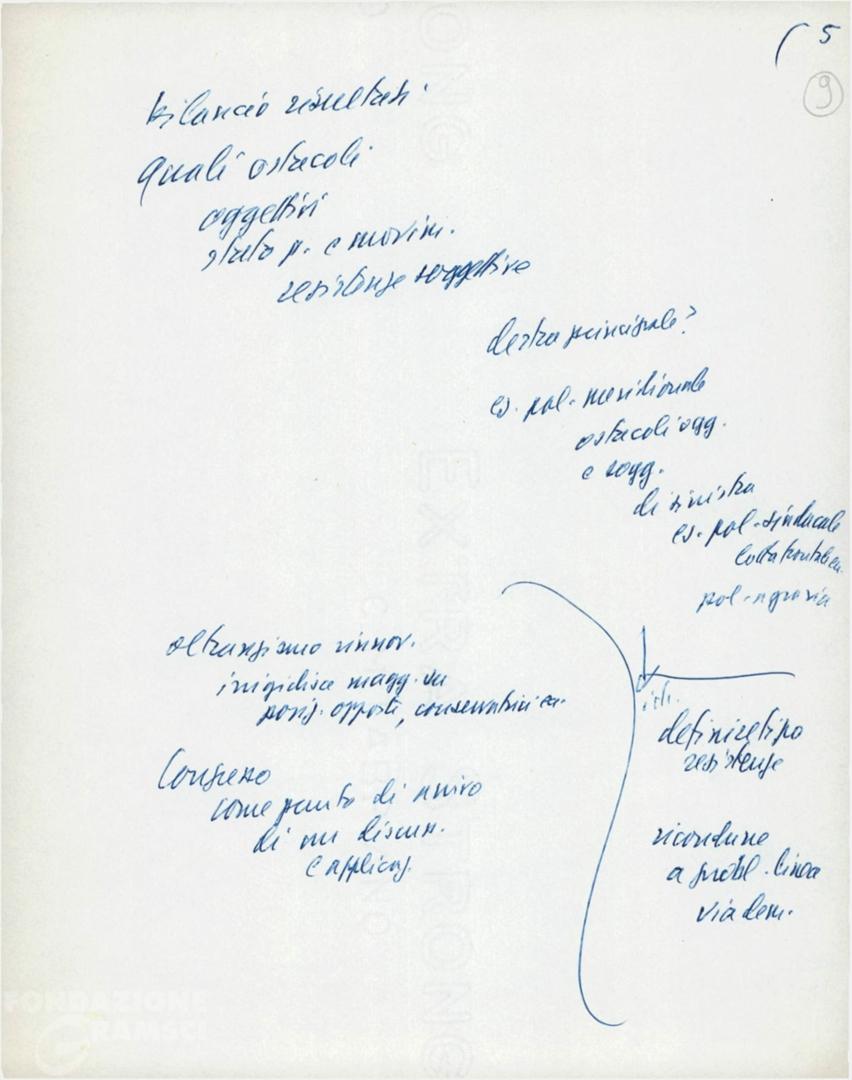 ( 5
9
bilancio risultati
Quali ostacoli
oggettivi
stato p. e movim.
resistenze soggettive
destra principale?
es. pol. meridionale
ostacoli ogg.
e sogg.
di sinistra
es. pol. sindacale
pol. agraria
oltranzismo innov.
irrigidisce magg. su
posiz. opposte, conservatrici ecc.
definire tipo
resistenze
Congresso
come punto di arrivo
di un discuss.
e applicaz.
ricondurre
a probl. linea
via dem.
FONDAZIONE
GRAMSCI